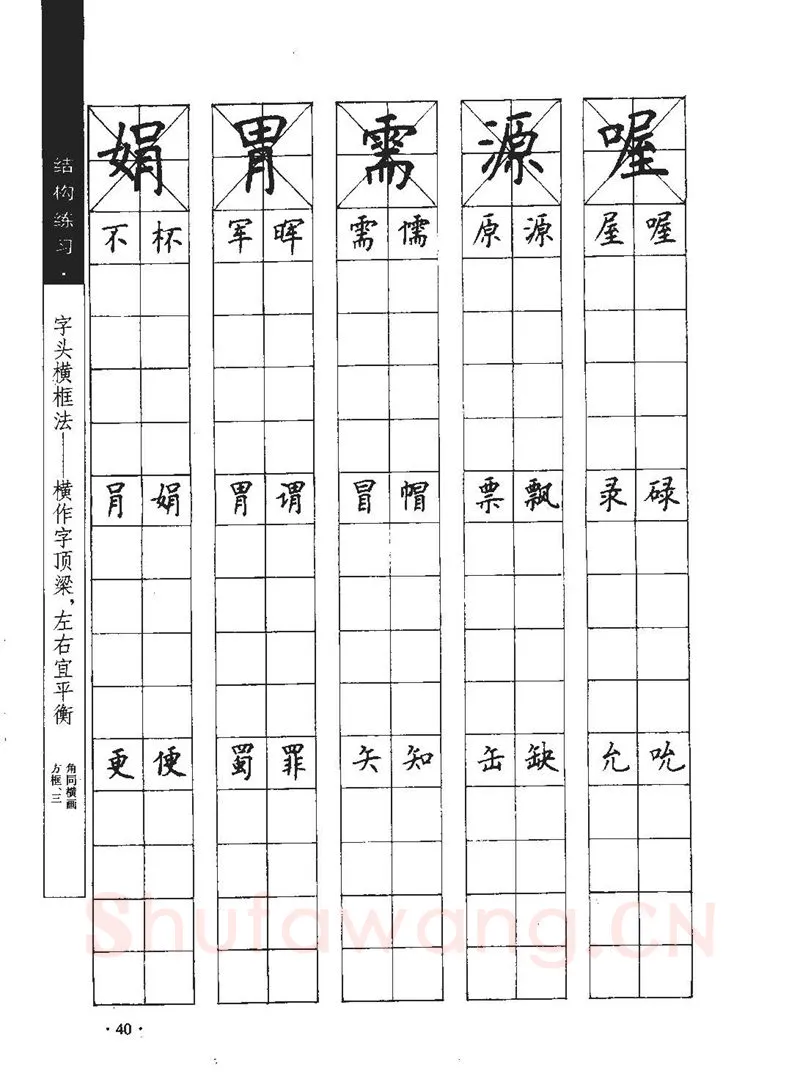 结构练习·
字头横框法——横作字顶梁，左右宜平衡
角同横画
方框、三
娟 胃 需 源 喔
不 杯 军 晖 需 懦 原 源 屋 喔
肙 娟 胃 谓 冒 帽 票 飘 录 碌
更 便 蜀 罪 矢 知 缶 缺 允 吮
Shufawang.CN
·40·